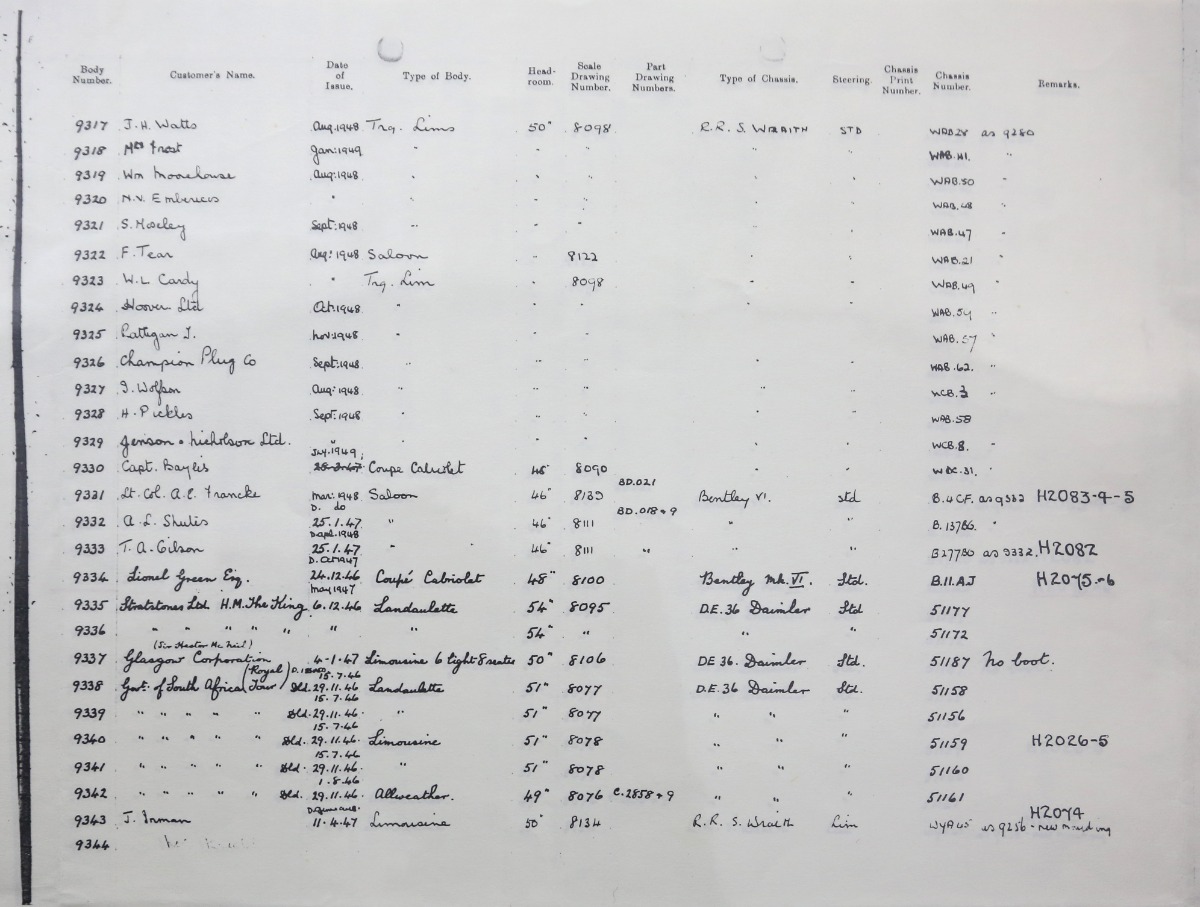 Body Number. Customer's Name. Date of Issue. Type of Body. Head-room. Scale Drawing Number. Part Drawing Numbers. Type of Chassis. Steering. Chassis Print Number. Chassis Number. Remarks.
9317 J.H. Watts Aug.1948 Trg. Lims 50" 8098 R.R. S. WRAITH STD WAB28 as 9280
9318 Mrs Frost Jan:1949 " " " " " WAB.41. "
9319 Wm Moorehouse Aug:1948 " " " " " WAB.50 "
9320 N.V. Embiricos " " " " " " WAB.48 "
9321 S. Moseley Sept:1948 " " " " " WAB.47 "
9322 F. Tear Aug:1948 Saloon " 8122 " " WAB.21 "
9323 W.L. Cardy " Trg. Lim " 8098 " " WAB.49 "
9324 Hoover Ltd Oct:1948 " " " " " WAB.54 "
9325 Rattigan T. Nov:1948 " " " " " WAB.57 "
9326 Champion Plug Co Sept:1948 " " " " " WAB.62. "
9327 I. Wolfson Aug:1948 " " " " " WCB. "
9328 H. Pickles Sept:1948 " " " " " WAB.58
9329 Jenson & Nicholson Ltd. " " " " " " WCB.8. "
9330 Capt. Bayles July.1949; 28-3-47 Coupe Cabriolet 48" 8090 " " WDC.31. "
BD.021
9331 Lt. Col. A.C. Francke Mar:1948 Saloon 46" 8139 Bentley VI. Std B.4CF. as 9332 H2083-4-5
D. do BD.018+9
9332 A.L. Shutes 25.1.47 " 46" 8111 " " B.137BG. "
D apl.1948
9333 T.A. Gilson 25.1.47 " 46" 8111 " " " B277BG as 9332. H2082
D. Oct 1947
9334 Lionel Green Esq. 24.12.46 Coupé Cabriolet 48" 8100 Bentley Mk. VI. Std. B.11.AJ H2075-6
May 1947
9335 Stratstones Ltd H.M. The King 6.12.46 Landaulette 54" 8095 D.E. 36 Daimler Std 51177
9336 " " " " " " 54" " " " 51172
(Sir Hector Mc Neil)
9337 Glasgow Corporation 4-1.47 Limousine 6 light 8 seater 50" 8106 DE 36. Daimler Std. 51187 No boot.
15.7.46
9338 Govt. of South Africa (Royal Tour) Dld. 29.11.46 Landaulette 51" 8077 D.E. 36 Daimler Std. 51158
15.7.46
9339 " " " " " Dld. 29.11.46. " 51" 8077 " " " 51156
15.7.46
9340 " " " " " Dld. 29.11.46. Limousine 51" 8078 " " " 51159 H2026-5
15.7.46
9341 " " " " " Dld. 29.11.46 " 51" 8078 " " " 51160
1.8.46
9342 " " " " " Dld. 29.11.46 Allweather. 49" 8076 C.2858+9 " " 51161
9343 J. Inman 11.4.47 Limousine 50" 8134 R.R. S. Wraith Lim as 9256 - new moulding H2074
9344